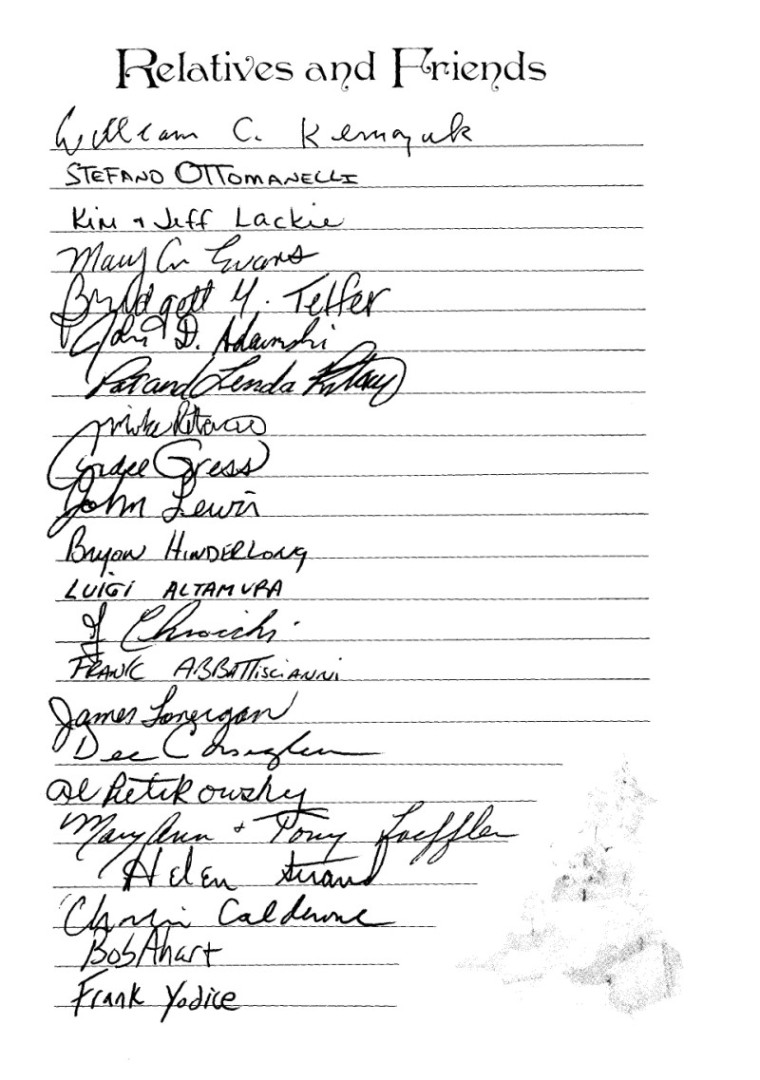 Relatives and Friends
William C.
STEFANO OTTOMANELLI
Kim & Jeff Lackie
Mary Evans
Bridgett Y. Telfer
John D. Adamski
Pat and Linda Ritacco
Mike Ritacco
Cyndee Gress
John Lewis
Bryon HINDERLONG
LUIGI ALTAMURA
FRANK ABBATTISCIANNI
James Lonergan
Dee
Al Pietikowsky
Mary Ann & Tony Loeffler
Helen Strand
Calderone
Bob Ahart
Frank Yodice